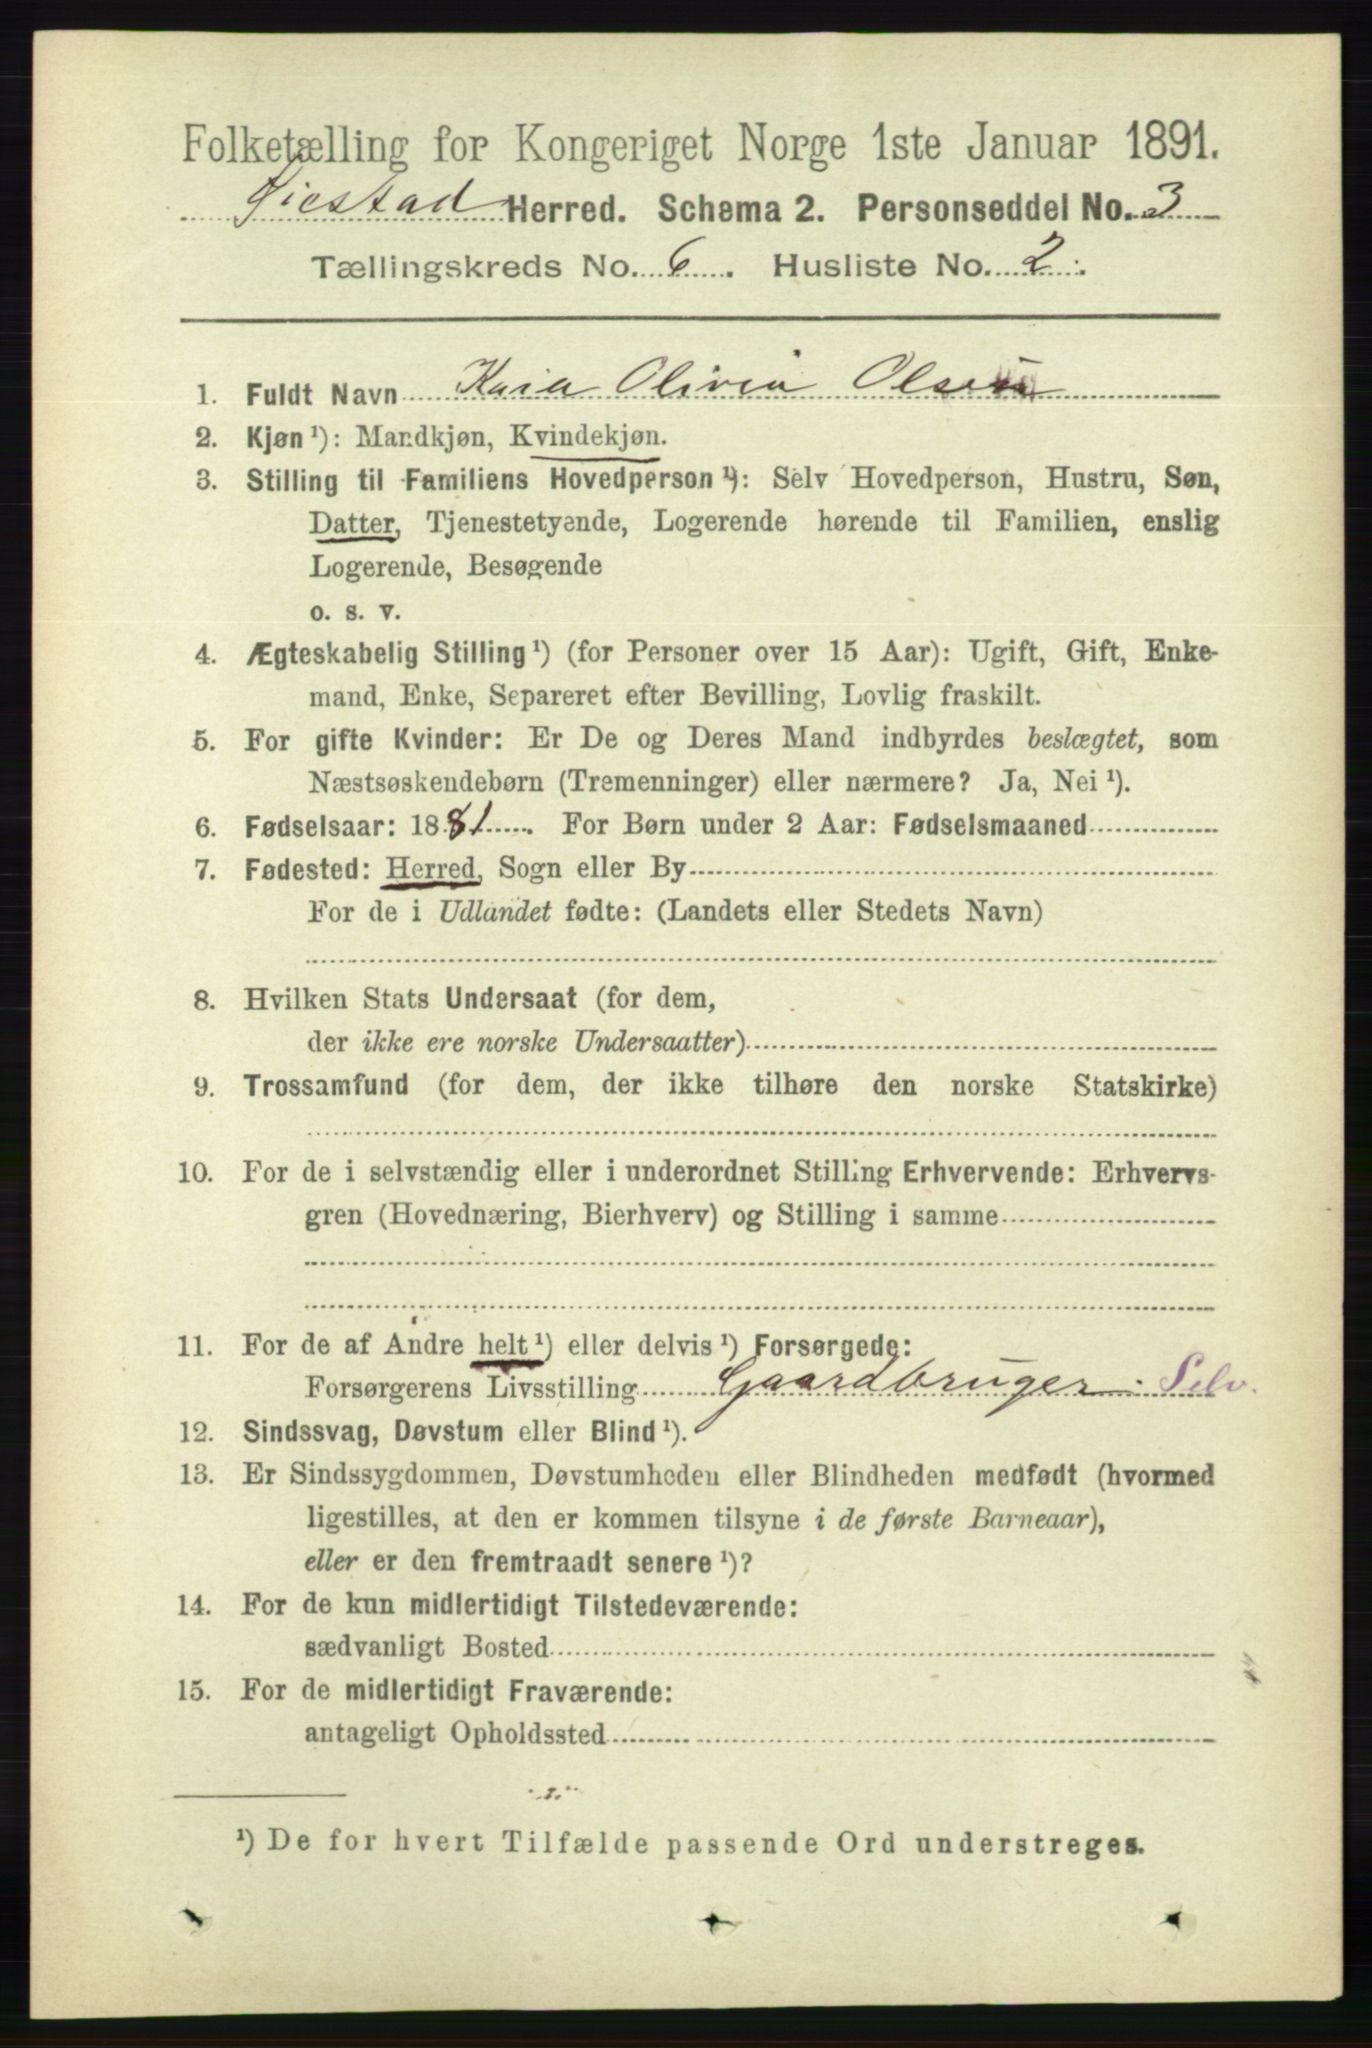 Folketælling for Kongeriget Norge 1ste Januar 1891.
Øiestad Herred. Schema 2. Personseddel No. 3
Tællingskreds No. 6. Husliste No. 2.
1. Fuldt Navn Kaia Olivia Olsen
2. Kjøn ¹): Mandkjøn, Kvindekjøn.
3. Stilling til Familiens Hovedperson ¹): Selv Hovedperson, Hustru, Søn,
Datter, Tjenestetyende, Logerende hørende til Familien, enslig
Logerende, Besøgende
o. s. v.
4. Ægteskabelig Stilling ¹) (for Personer over 15 Aar): Ugift, Gift, Enke-
mand, Enke, Separeret efter Bevilling, Lovlig fraskilt.
5. For gifte Kvinder: Er De og Deres Mand indbyrdes beslægtet, som
Næstsøskendebørn (Tremenninger) eller nærmere? Ja, Nei ¹).
6. Fødselsaar: 1881. For Børn under 2 Aar: Fødselsmaaned
7. Fødested: Herred, Sogn eller By
For de i Udlandet fødte: (Landets eller Stedets Navn)
8. Hvilken Stats Undersaat (for dem,
der ikke ere norske Undersaatter)
9. Trossamfund (for dem, der ikke tilhøre den norske Statskirke)
10. For de i selvstændig eller i underordnet Stilling Erhvervende: Erhvervs-
gren (Hovednæring, Bierhverv) og Stilling i samme
11. For de af Andre helt ¹) eller delvis ¹) Forsørgede:
Forsørgerens Livsstilling Gaardbruger. Selv.
12. Sindssvag, Døvstum eller Blind ¹).
13. Er Sindssygdommen, Døvstumheden eller Blindheden medfødt (hvormed
ligestilles, at den er kommen tilsyne i de første Barneaar),
eller er den fremtraadt senere ¹)?
14. For de kun midlertidigt Tilstedeværende:
sædvanligt Bosted
15. For de midlertidigt Fraværende:
antageligt Opholdssted
¹) De for hvert Tilfælde passende Ord understreges.